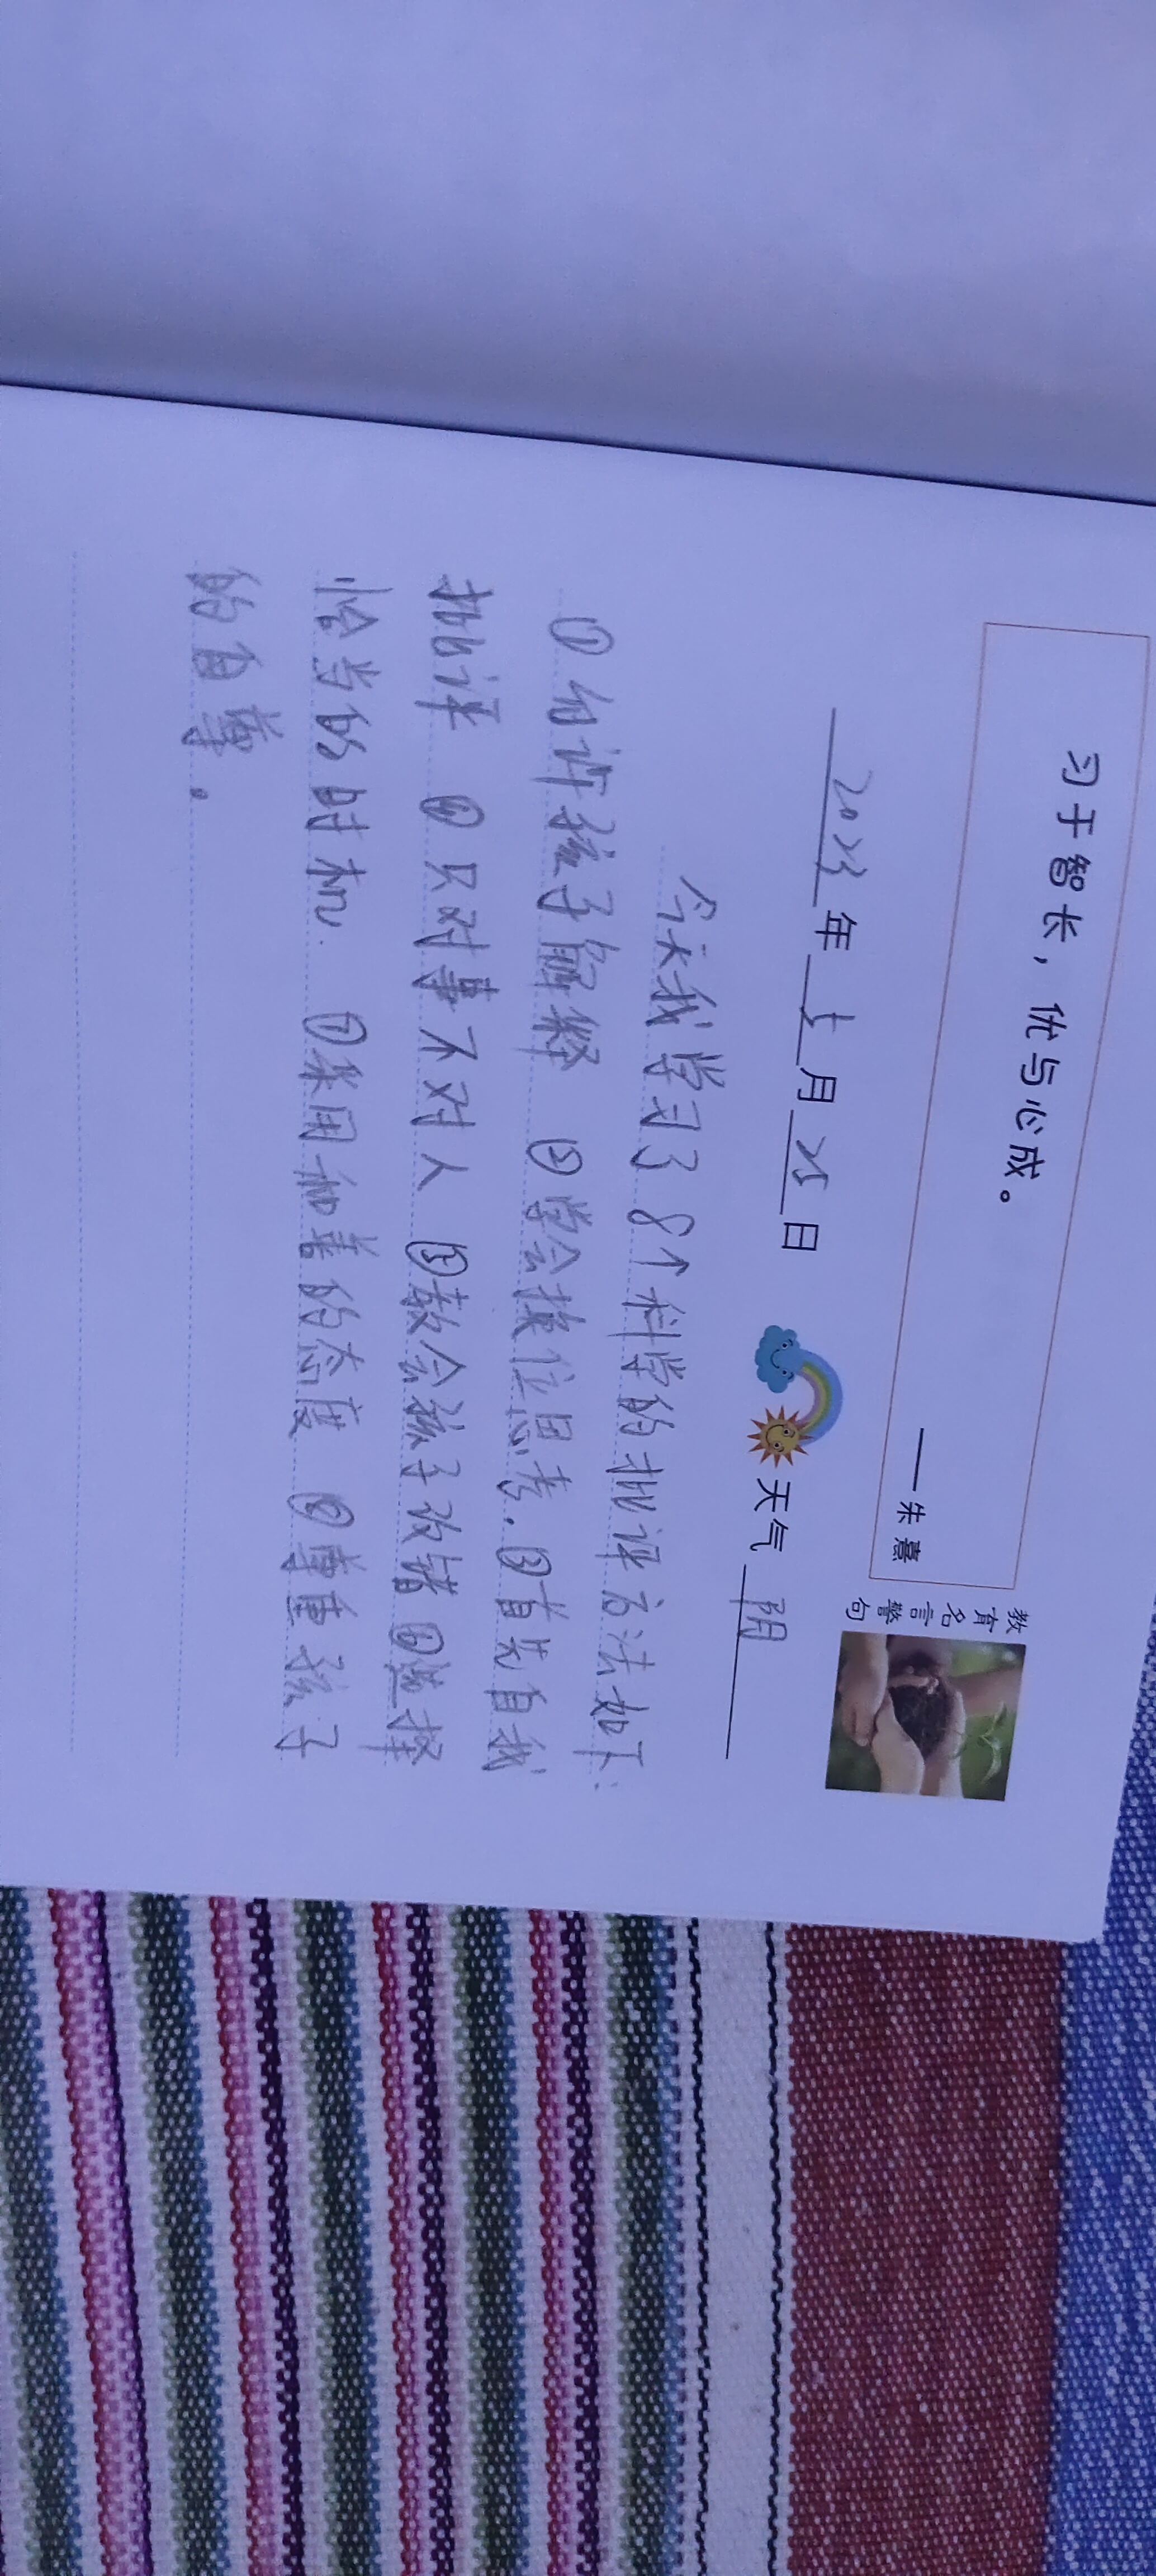 习于智长，优与心成。
——朱熹
教育名言警句
2023年 七月 25日 天气 阴
今天我学习了8个科学的批评方法如下:
①允许孩子解释 ②学会换位思考.③首先自我
批评 ④只对事不对人 ⑤教会孩子改错 ⑥选择
恰当的时机. ⑦采用和善的态度 ⑧尊重孩子
的自尊.